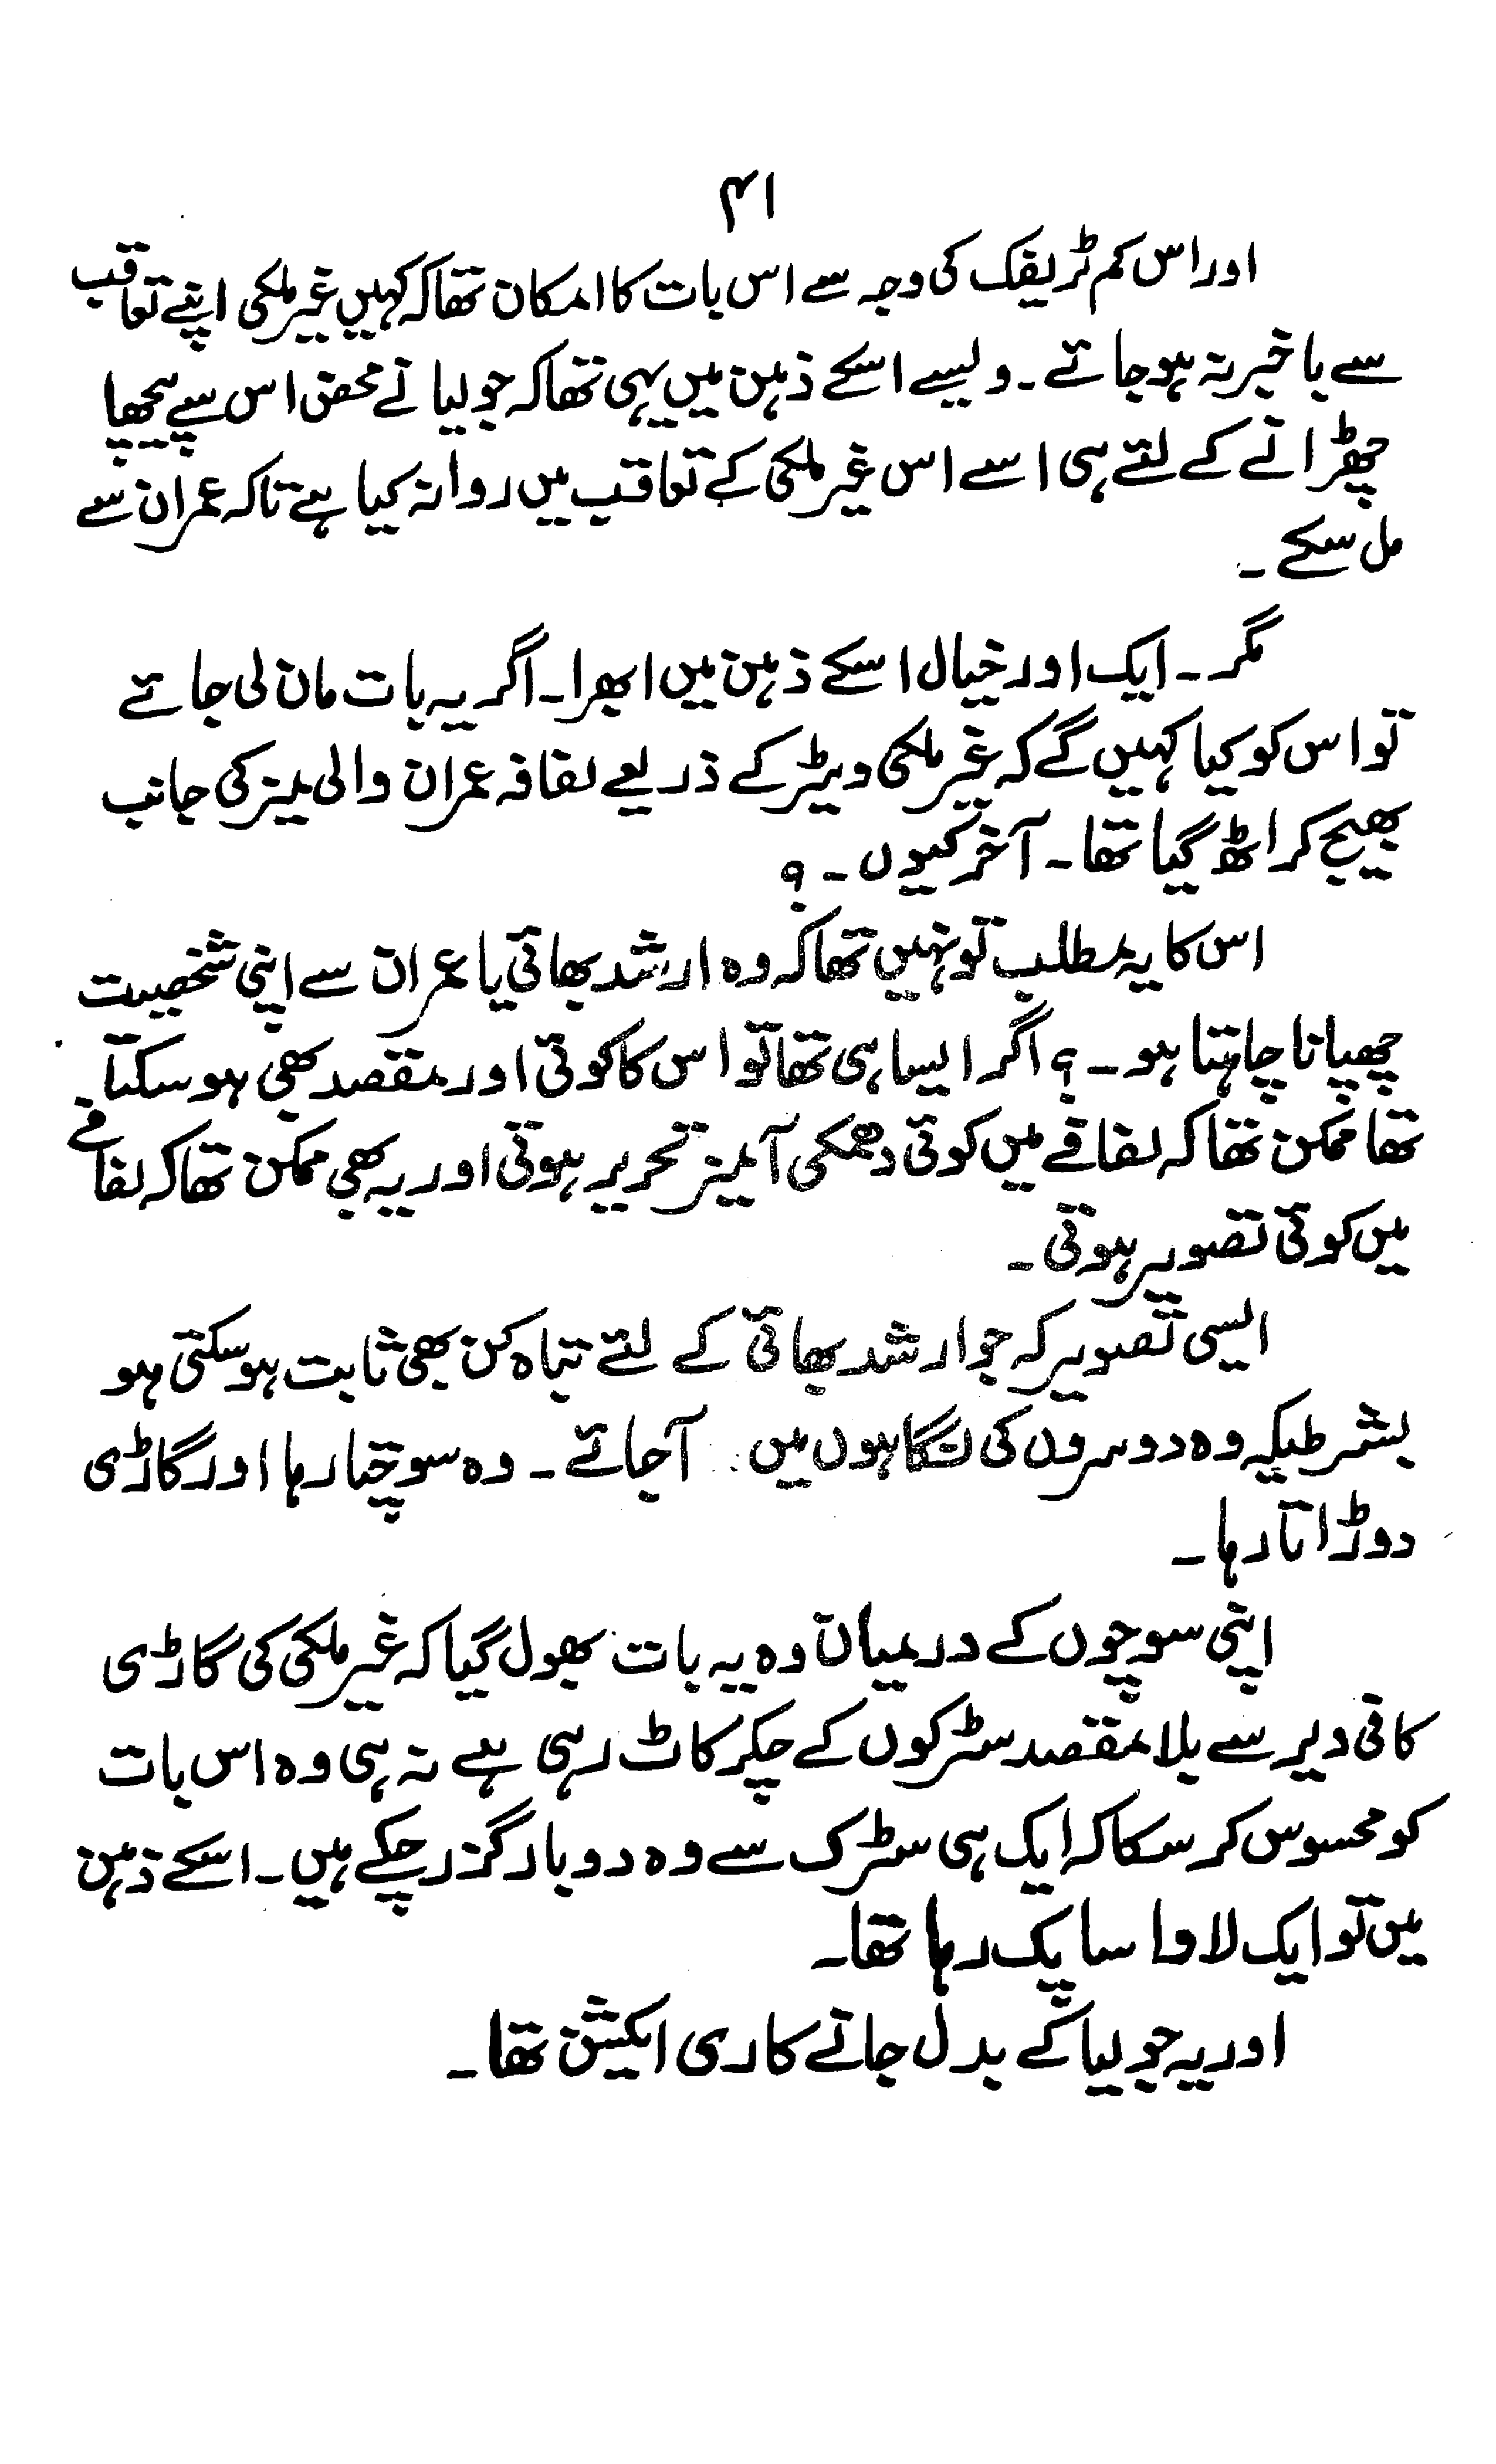 ۴۱
اور اس کم ٹریفک کی وجہ سے اس بات کا امکان تھا کہ کہیں غیر ملکی اپنے تعاقب
سے باخبر نہ ہو جائے ۔ ویسے اسکے ذہن میں یہی تھا کہ جولیا نے محض اس سے پیچھا
چھڑانے کے لئے ہی اسے اس غیر ملکی کے تعاقب میں روانہ کیا ہے تاکہ عمران سے
مل سکے ۔
مگر ۔ ایک اور خیال اسکے ذہن میں ابھرا ۔ اگر یہ بات مان لی جائے
تو اس کو کیا کہیں گے کہ غیر ملکی ویٹر کے ذریعے لفافہ عمران والی میز کی جانب
بھیج کر اٹھ گیا تھا ۔ آخر کیوں ۔ ؟
اس کا یہ مطلب تو نہیں تھا کہ وہ ارشد بھائی یا عمران سے اپنی شخصیت
چھپانا چاہتا ہو ۔ ؟ اگر ایسا ہی تھا تو اس کا کوئی اور مقصد بھی ہو سکتا
تھا ممکن تھا کہ لفافے میں کوئی دھمکی آمیز تحریر ہوتی اور یہ بھی ممکن تھا کہ لفافے
میں کوئی تصویر ہوتی ۔
ایسی تصویر کہ جو ارشد بھائی کے لئے تباہ کن بھی ثابت ہو سکتی ہو
بشرطیکہ وہ دوسروں کی نگاہوں میں آجائے ۔ وہ سوچتا رہا اور گاڑی
دوڑاتا رہا ۔
اپنی سوچوں کے درمیان وہ یہ بات بھول گیا کہ غیر ملکی کی گاڑی
کافی دیر سے بلا مقصد سڑکوں کے چکر کاٹ رہی ہے نہ ہی وہ اس بات
کو محسوس کر سکا کہ ایک ہی سڑک سے وہ دو بار گزر چکے ہیں ۔ اسکے ذہن
میں تو ایک لاوا سا پک رہا تھا ۔
اور یہ جولیا کے بدل جانے کا ری ایکشن تھا ۔